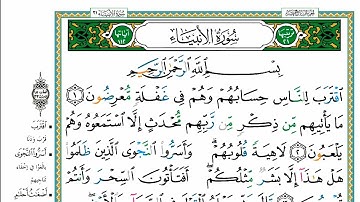 سُورَةُ الأَنبِيَاءِ
بِسْمِ ٱللَّهِ ٱلرَّحْمَٰنِ ٱلرَّحِيمِ
ٱقْتَرَبَ لِلنَّاسِ حِسَابُهُمْ وَهُمْ فِى غَفْلَةٍ مُّعْرِضُونَ ١
مَا يَأْتِيهِم مِّن ذِكْرٍ مِّن رَّبِّهِم مُّحْدَثٍ إِلَّا ٱسْتَمَعُوهُ وَهُمْ
يَلْعَبُونَ ٢ لَاهِيَةً قُلُوبُهُمْ وَأَسَرُّوا۟ ٱلنَّجْوَى ٱلَّذِينَ ظَلَمُوا۟
هَلْ هَٰذَآ إِلَّا بَشَرٌ مِّثْلُكُمْ أَفَتَأْتُونَ ٱلسِّحْرَ وَأَنتُمْ
ٱقْتَرَبَ
أَسَرُّوا۟ ٱلنَّجْوَى